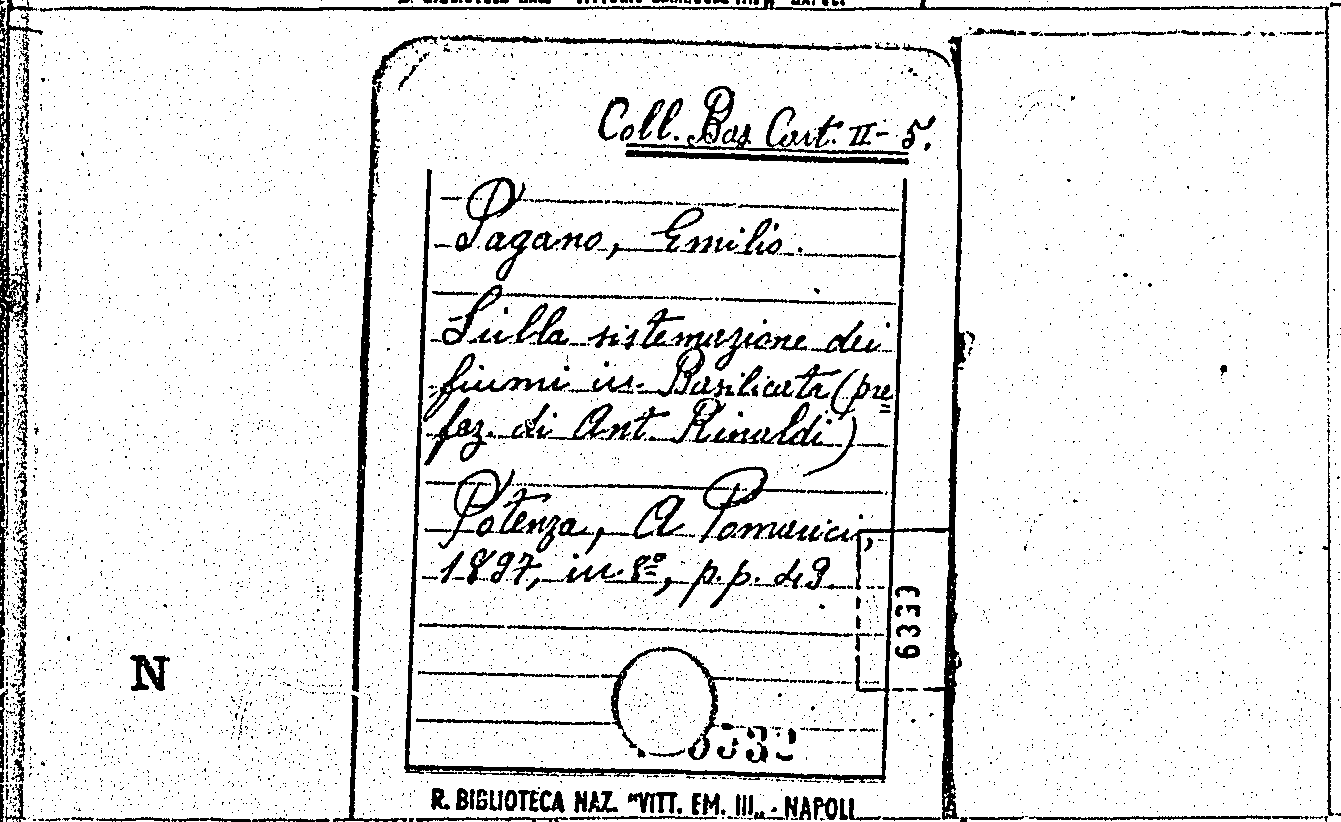 Coll. Bas. Cart. II-5.
Pagano, Emilio.
Sulla sistemazione dei
fiumi in Basilicata (pre=
faz. di Ant. Rinaldi)
Potenza, A Pomarici,
1897, in 8º, p.p. 49
6333
N
R. BIBLIOTECA NAZ. "VITT. EM. III„ - NAPOLI